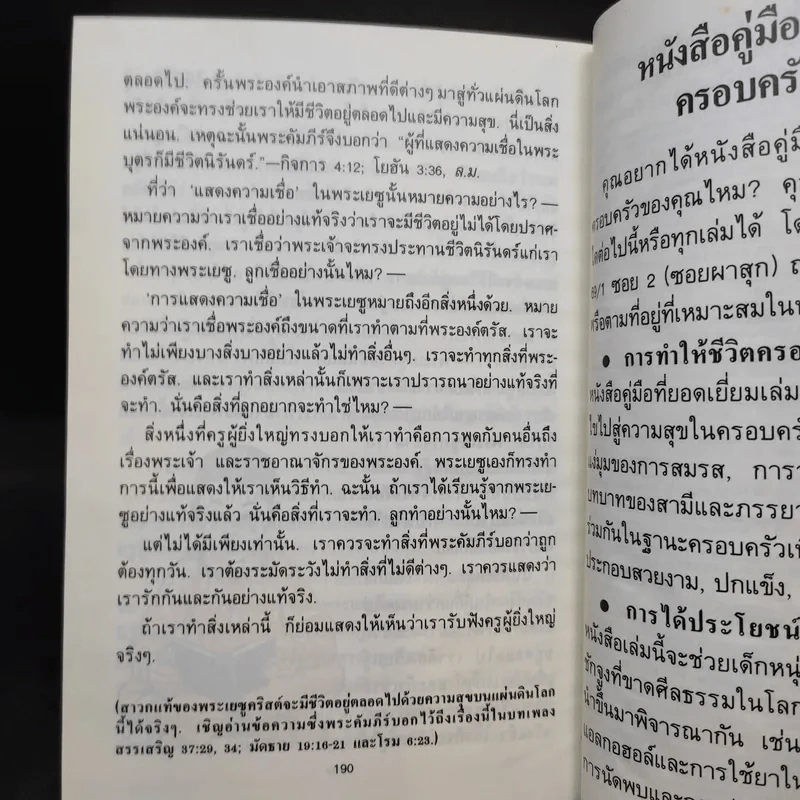 ตลอดไป. ครั้นพระองค์นำเอาสภาพที่ดีต่างๆ มาสู่ทั่วแผ่นดินโลก
พระองค์จะทรงช่วยเราให้มีชีวิตอยู่ตลอดไปและมีความสุข. นี่เป็นสิ่ง
แน่นอน. เหตุฉะนั้นพระคัมภีร์จึงบอกว่า “ผู้ที่แสดงความเชื่อในพระ
บุตรก็มีชีวิตนิรันดร์.”—กิจการ 4:12; โยฮัน 3:36, ล.ม.
ที่ว่า ‘แสดงความเชื่อ’ ในพระเยซูนั้นหมายความอย่างไร? —
หมายความว่าเราเชื่ออย่างแท้จริงว่าเราจะมีชีวิตอยู่ไม่ได้โดยปราศ-
จากพระองค์. เราเชื่อว่าพระเจ้าจะทรงประทานชีวิตนิรันดร์แก่เรา
โดยทางพระเยซู. ลูกเชื่ออย่างนั้นไหม? —
‘การแสดงความเชื่อ’ ในพระเยซูหมายถึงอีกสิ่งหนึ่งด้วย. หมาย
ความว่าเราเชื่อพระองค์ถึงขนาดที่เราทำตามที่พระองค์ตรัส. เราจะ
ทำไม่เพียงบางสิ่งบางอย่างแล้วไม่ทำสิ่งอื่นๆ. เราจะทำทุกสิ่งที่พระ-
องค์ตรัส. และเราทำสิ่งเหล่านั้นก็เพราะเราปรารถนาอย่างแท้จริงที่
จะทำ. นั่นคือสิ่งที่ลูกอยากจะทำใช่ไหม? —
สิ่งหนึ่งที่ครูผู้ยิ่งใหญ่ทรงบอกให้เราทำคือการพูดกับคนอื่นถึง
เรื่องพระเจ้า และราชอาณาจักรของพระองค์. พระเยซูเองก็ทรงทำ
การนี้เพื่อแสดงให้เราเห็นวิธีทำ. ฉะนั้น ถ้าเราได้เรียนรู้จากพระเย-
ซูอย่างแท้จริงแล้ว นั่นคือสิ่งที่เราจะทำ. ลูกทำอย่างนั้นไหม? —
แต่ไม่ได้มีเพียงเท่านั้น. เราควรจะทำสิ่งที่พระคัมภีร์บอกว่าถูก
ต้องทุกวัน. เราต้องระมัดระวังไม่ทำสิ่งที่ไม่ดีต่างๆ. เราควรแสดงว่า
เรารักกันและกันอย่างแท้จริง.
ถ้าเราทำสิ่งเหล่านี้ ก็ย่อมแสดงให้เห็นว่าเรารับฟังครูผู้ยิ่งใหญ่
จริงๆ.
(สาวกแท้ของพระเยซูคริสต์จะมีชีวิตอยู่ตลอดไปด้วยความสุขบนแผ่นดินโลก
นี้ได้จริงๆ. เชิญอ่านข้อความซึ่งพระคัมภีร์บอกไว้ถึงเรื่องนี้ในบทเพลง
สรรเสริญ 37:29, 34; มัดธาย 19:16-21 และโรม 6:23.)
190
หนังสือคู่มือ
ครอบครัว
คุณอยากได้หนังสือคู่มื
ครอบครัวของคุณไหม? คุ
ใดต่อไปนี้หรือทุกเล่มได้ โด
69/1 ซอย 2 (ซอยผาสุก) ถ
หรือตามที่อยู่ที่เหมาะสมใน
● การทำให้ชีวิตครอ
หนังสือคู่มือที่ยอดเยี่ยมเล่ม
ไขไปสู่ความสุขในครอบครั
แง่มุมของการสมรส, การ
บทบาทของสามีและภรรยา
ร่วมกันในฐานะครอบครัวเ
ประกอบสวยงาม, ปกแข็ง,
● การได้ประโยชน์
หนังสือเล่มนี้จะช่วยเด็กหนุ่
ชักจูงที่ขาดศีลธรรมในโลก
นำขึ้นมาพิจารณากัน เช่น
แอลกอฮอล์และการใช้ยาใน
การนัดพบและ